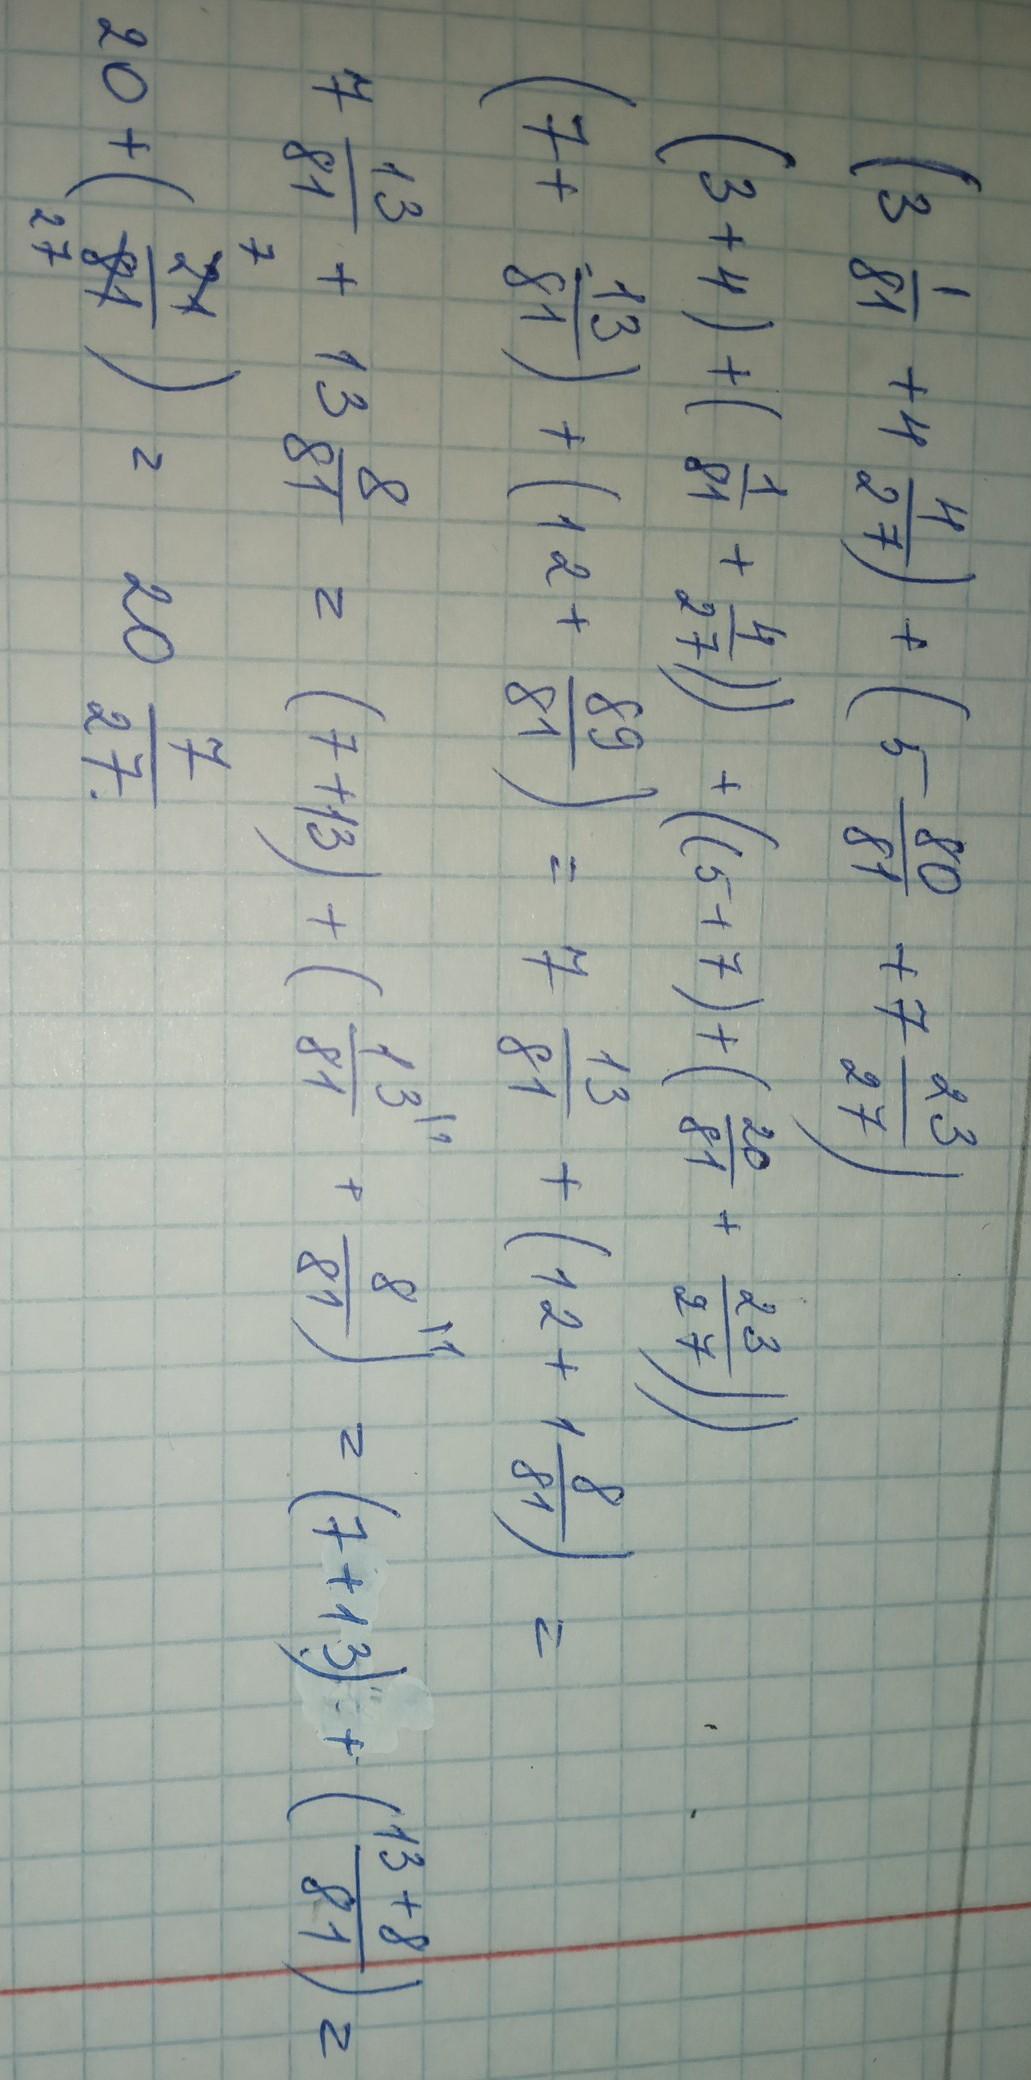 (3 1/81 + 4 4/27) + (5 80/81 + 7 23/27)
(3+4)+(1/81 + 4/27)) + ((5+7)+(20/81 + 23/27)))
(7+ 13/81) + (12+ 89/81) = 7 13/81 + (12+1 8/81) =
7 13/81 + 13 8/81 = (7+13) + (13/81 \1 + 8/81 \1) = (7+13) + (13+8/81) =
20 + (21/81) 7 27 = 20 7/27.